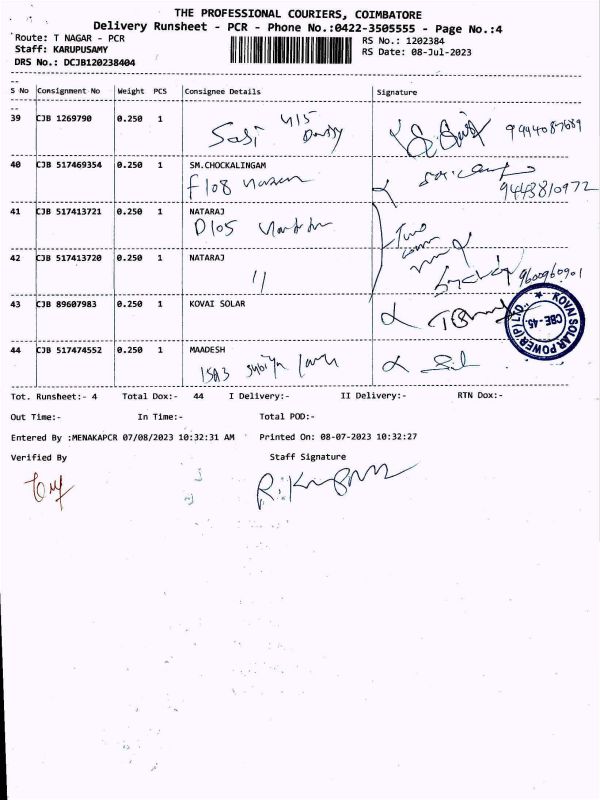 THE PROFESSIONAL COURIERS, COIMBATORE
Delivery Runsheet - PCR - Phone No.:0422-3505555 - Page No.:4
Route: T NAGAR - PCR
RS No.: 1202384
Staff: KARUPUSAMY
RS Date: 08-Jul-2023
DRS No.: DCJB120238404
S No Consignment No Weight PCS Consignee Details Signature
39 CJB 1269790 0.250 1 Sasi 415
40 CJB 517469354 0.250 1 SM.CHOCKALINGAM
F108
9443810972
41 CJB 517413721 0.250 1 NATARAJ
D105
42 CJB 517413720 0.250 1 NATARAJ
11 9600960901
43 CJB 89607983 0.250 1 KOVAI SOLAR
KOVAI SOLAR POWER (P) LTD., CBE - 45.
44 CJB 517474552 0.250 1 MAADESH
15A3
Tot. Runsheet:- 4 Total Dox:- 44 I Delivery:- II Delivery:- RTN Dox:-
Out Time:- In Time:- Total POD:-
Entered By :MENAKAPCR 07/08/2023 10:32:31 AM Printed On: 08-07-2023 10:32:27
Verified By Staff Signature